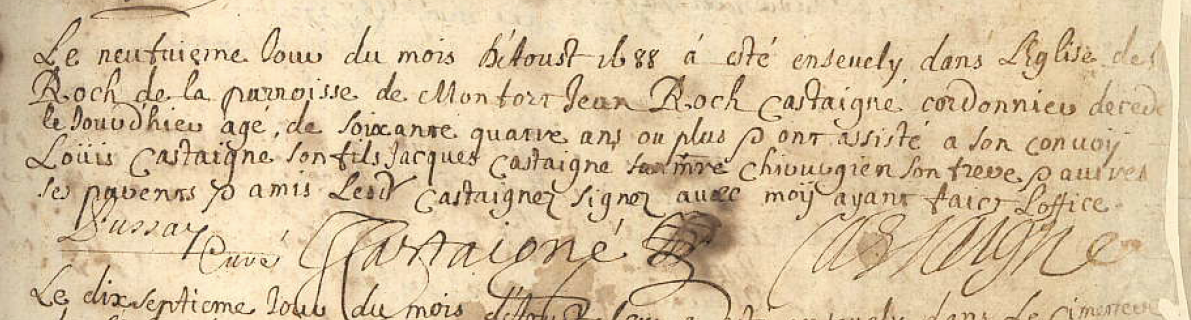 Le neufuieme Jour du mois d'Aoust 1688 á esté enseuely dans L'Eglise de St
Roch de la parroisse de Montfort Jean Roch Castaigné cordonnier decedé
le Jourdhier agé, de soixante quatre ans ou plus & ont assisté a son convoÿ
Loüis Castaigne son fils Jacques Castaigne mre Chirurgien son frere & autres
ses parents & amis Lesdt Castaignez signez avec moÿ ayant faict L'office
Dussau Curé Castaigné Castaigne
Le dixseptieme Jour du mois d'Aoust enseuely dans le cimetiere